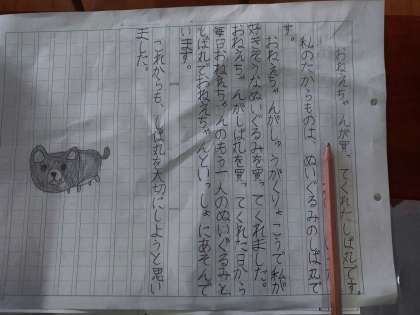 おねえちゃんが買ってくれたしば丸です
私のたからものは、ぬいぐるみのしば丸で
す。
おねえちゃんがしゅうがくりょこうで私が
好きそうなぬいぐるみを買ってくれました。
おねえちゃんがしば丸を買ってくれた日から
毎日おねえちゃんのもう一人のぬいぐるみと
しば丸でおねえちゃんといっしょにあそんで
います。
これからも、しば丸を大切にしようと思い
ました。